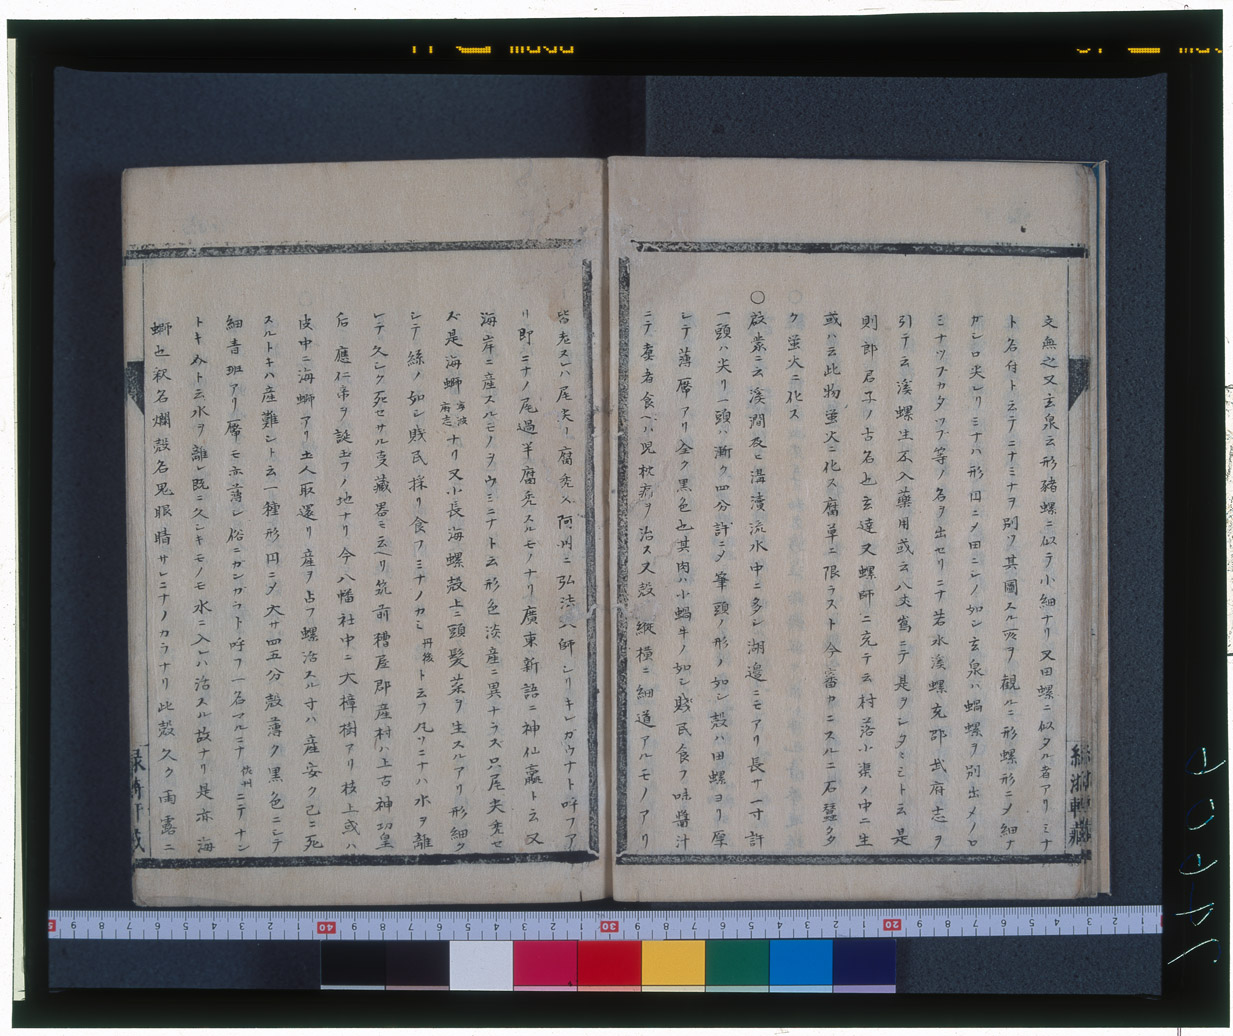 文無之又玄泉云形豬螺ニ似ラ小細ナリ又田螺ニ似タル者アリミナ
ト名付ト云テニナミナヲ別ツ其圖スル処ヲ観ルニ形螺形ニメ細ナ
ガシロ尖レリミナハ形円ニメ田ニシノ如シ玄泉ハ蝸螺ヲ別出メノロ
ミナツブカタツブ等ノ名ヲ出セリニナ若水溪螺充邵武府志ヲ
引テ云溪螺生不入藥用或云八夾寫ニテ是ヲシタヾミト云是
則郎君子ノ古名也玄達又螺師ニ充テ云村落小渠ノ中ニ生
或ハ云此物蛍火ニ化ス腐草ニ限ラスト今審カニスルニ石蠶タ
ク蛍火ニ化ス
〇啟蒙ニ云溪澗及ヒ溝瀆流水中ニ多シ湖邉ニモアリ長サ一寸許
一頭ハ尖リ一頭ハ漸ク四分許ニメ筆頭ノ形ノ如シ殻ハ田螺ヨリ厚
シテ薄厴アリ全ク黒色也其肉ハ小蝸牛ノ如シ賤民食フ味醬汁
ニテ妻者食ヘハ児枕痛ヲ治ス又殻縦横ニ細道アルモノアリ
皆老スレハ尾尖リ腐禿ス阿州ニ弘法大師シリキレガウナト呼フア
リ即ニナノ尾過半腐禿スルモノナリ廣東新語ニ神仙蠃ト云又
海岸ニ産スルモノヲウミニナト云形色淡産ニ異ナラズ只尾尖禿セ
ズ是海螄寧波府志ナリ又小長海螺殻上ニ頭髮菜ヲ生スルアリ形細ク
シテ絲ノ如シ賤民採リ食フミナノカミ丹後ト云フ凡ソニナハ水ヲ離
レテ久シク死セサル支藏器ミ云ヘリ筑前糟屋郡産村ハ上古神功皇
后應仁帝ヲ誕玉フノ地ナリ今八幡社中ニ大樟樹アリ枝上或ハ
皮中ニ海螄アリ土人取還リ産ヲ占フ螺活スル寸ハ産安ク已ニ死
スルトキハ産難シト云一種形円ニメ大サ四五分殻薄ク黒色ニシテ
細青斑アリ厴モ亦薄シ俗ニガンガラト呼フ一名マルニナ佐州ニテナン
トキみト云水ヲ離レ既ニ久シキモノモ水ニ入レハ活スル故ナリ是亦海
螄也釈名爛殻名鬼眼睛サレニナノカラナリ此殻久ク雨露ニ